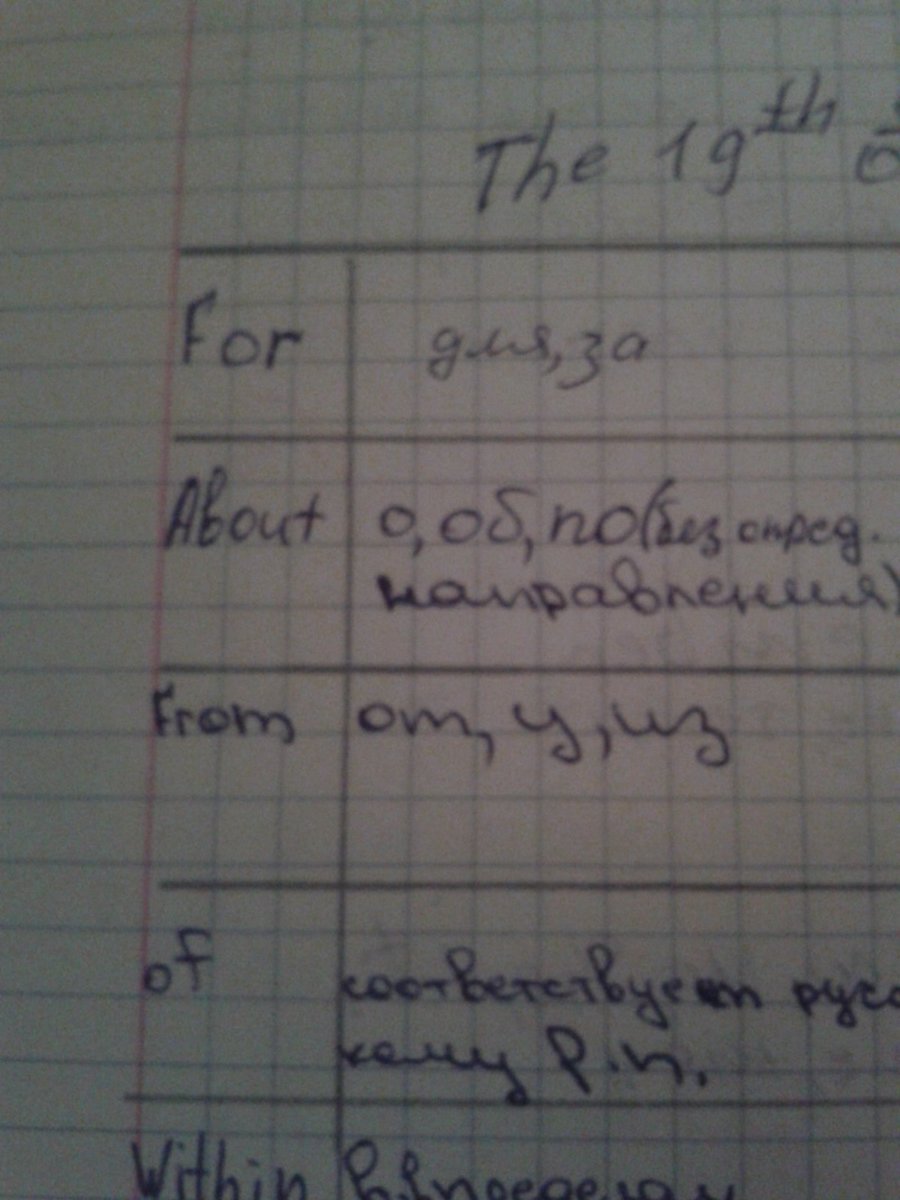 The 19th
For для, за
About о, об, по (без опред.
направления)
From от, у, из
of соответствует русс
кому Р.п.
Within в, в пределах